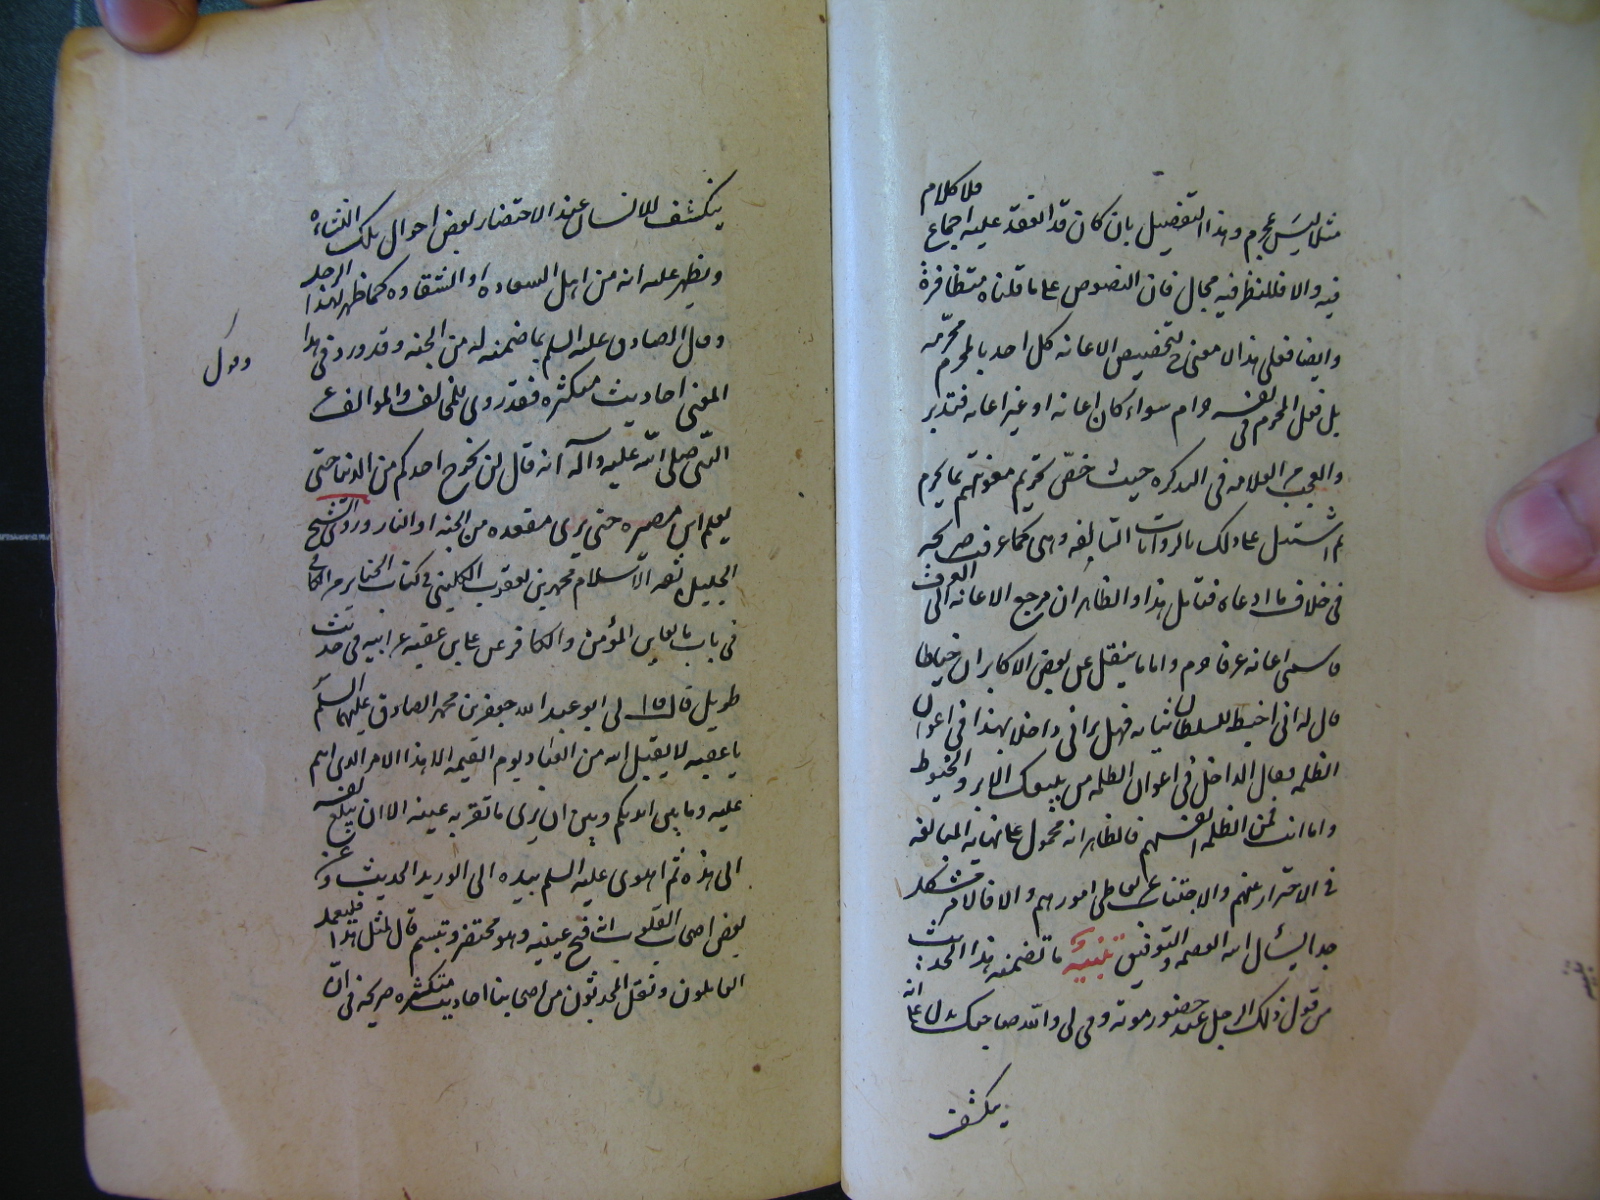 فلا كلام
مثلا ليس بمحرم وهذا التفصيل بان كان قد انعقد عليه اجماع
فيه والا فللنظر فيه مجال فان النصوص على ما قلناه متظافرة
وايضا فعلى هذا لا معنى لتخصيص الاعانه كل احد بالمحرم محرّمه
بل فعل المحرم في نفسه حرام سواء كان اعانه او غير اعانه فتدبر
والعجب من العلامه في التذكره حيث خصّ تحريم معونتهم بما يحرم
ثم استدل على ذلك بالروايات السالفه وهي كما عرفت صريحه
في خلاف ما ادعاه فتامل هذا والظاهر ان مرجع الاعانه الى العرف
فما سمى اعانه عرفا حرم واما ما ينقل عن بعض الاكابر ان خياطا
قال له اني اخيط للسلطان ثيابه فهل تراني داخلا بهذا في اعوان
الظلمه فقال الداخل في اعوان الظلمه من يبيعك الابر والخيوط
واما انت فمن الظلمه انفسهم فالظاهر انه محمول على نهايه المبالغه
في الاحتراز عنهم والاجتناب عن تعاطي امورهم والا فالامر مشكل
جدا نسئل الله العصمه والتوفيق تنبيه ما تضمنه هذا الحديث
من قول ذلك الرجل عند حضور موته وفى لي والله صاحبك يدل على انه
ينكشف
ينكشف للانسان عند الاحتضار بعض احوال تلك النشاه
ويظهر عليه انه من اهل السعاده او الشقاوه كما ظهر لهذا الرجل
وفاء الصادق عليه السلم بما ضمنه له من الجنه وقد ورد في هذا
المعنى احاديث متكثره فقد روى المخالف والموالف عن
النبي صلى الله عليه وآله انه قال لن يخرج احدكم من الدنيا حتى
يعلم اين مصيره حتى يرى مقعده من الجنه او النار وروى الشيخ
الجليل ثقه الاسلام محمد بن يعقوب الكليني في كتاب الجنايز من الكافي
في باب ما يعاين المؤمن والكافر عن علي بن عقبه عن ابيه في حديث
طويل قال قال لي ابو عبد الله جعفر بن محمد الصادق عليهما السلم
يا عقبه لا يقبل الله من العباد يوم القيمه الا هذا الامر الذي انتم
عليه وما بين احدكم وبين ان يرى ما تقر به عينه الا ان يبلغ نفسه
الى هذه ثم اهوى عليه السلم بيده الى الوريد الحديث وعن
بعض اصحاب القلوب انه فتح عينيه وهو محتضر وتبسم قال لمثل هذا فليعمل
العاملون ونقل المحدثون من اصحابنا احاديث متكثره صريحه في انّ